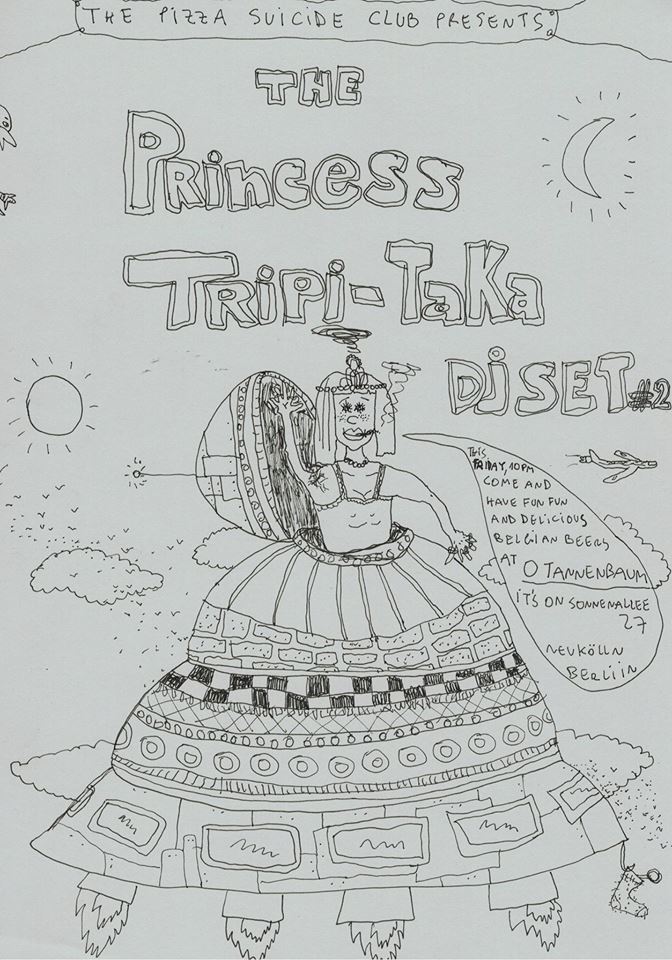 THE PIZZA SUICIDE CLUB PRESENTS
THE
PRincess
TRipi-TaKa
DJ SET #2
THIS
FRIDAY, 10 PM
COME AND
HAVE FUN FUN
AND DELICIOUS
BELGIIAN BEERS
AT O TANNENBAUM
IT'S ON SONNENALLEE
27
NEUKÖLLN
BERLIIN